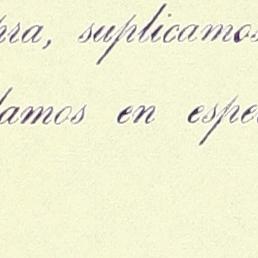 pra, suplicamos
damos en espe